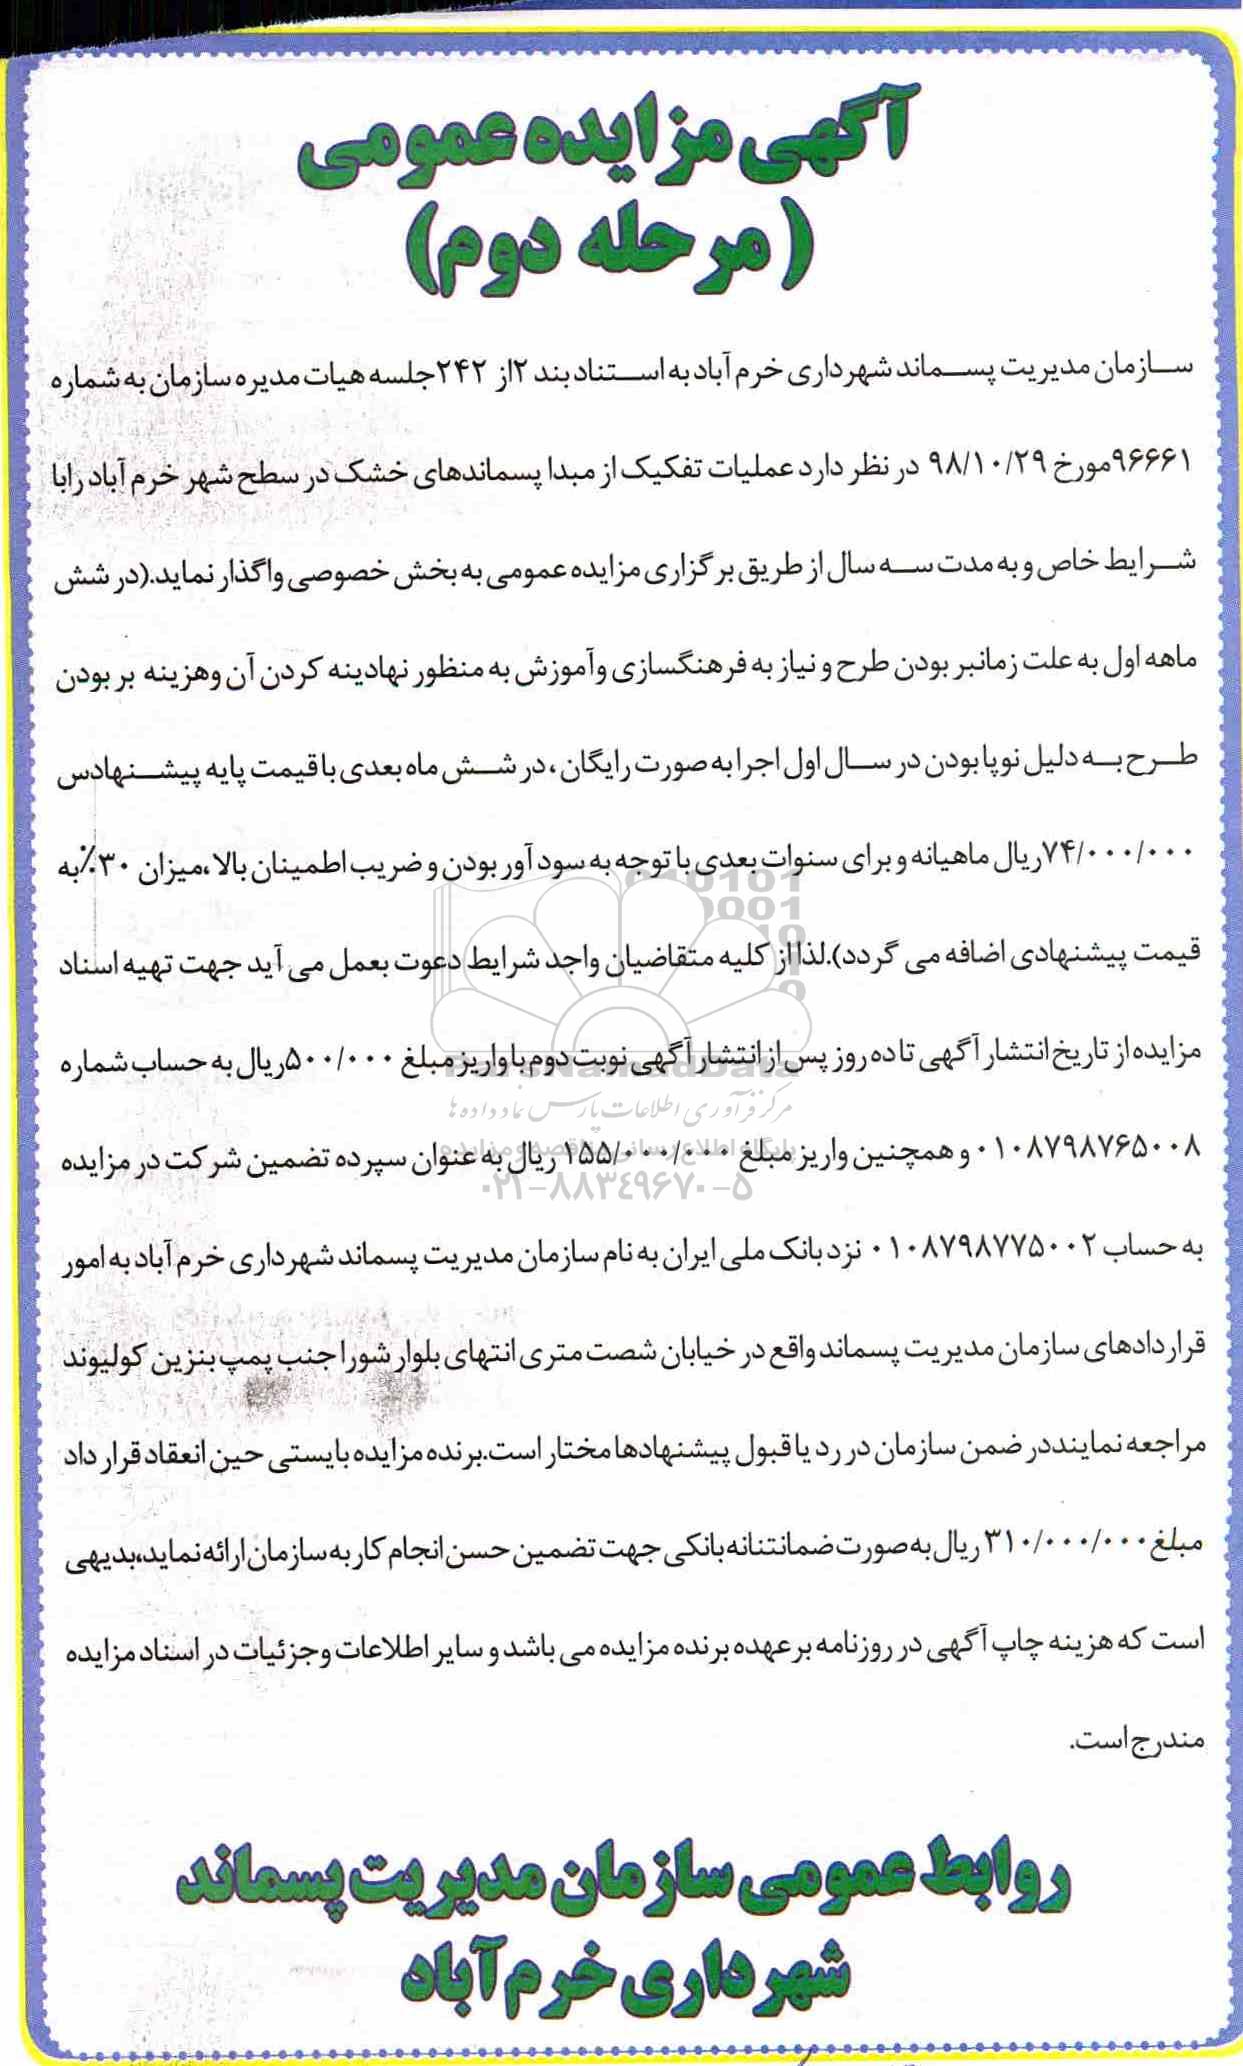 آگهی مزایده عمومی
(مرحله دوم)
سازمان مدیریت پسماند شهرداری خرم آباد به استناد بند ۲از ۲۴۲جلسه هیات مدیره سازمان به شماره
۹۶۶۶۱مورخ ۹۸/۱۰/۲۹ در نظر دارد عملیات تفکیک از مبدا پسماندهای خشک در سطح شهر خرم آباد رابا
شرایط خاص و به مدت سه سال از طریق برگزاری مزایده عمومی به بخش خصوصی واگذار نماید.(در شش
ماهه اول به علت زمانبر بودن طرح و نیاز به فرهنگسازی وآموزش به منظور نهادینه کردن آن وهزینه بر بودن
طرح به دلیل نوپا بودن در سال اول اجرا به صورت رایگان ، در شش ماه بعدی با قیمت پایه پیشنهادس
۷۴/۰۰۰/۰۰۰ریال ماهیانه و برای سنوات بعدی با توجه به سود آور بودن و ضریب اطمینان بالا ،میزان ۳۰٪به
قیمت پیشنهادی اضافه می گردد).لذااز کلیه متقاضیان واجد شرایط دعوت بعمل می آید جهت تهیه اسناد
مزایده از تاریخ انتشار آگهی تا ده روز پس از انتشار آگهی نوبت دوم با واریز مبلغ ۵۰۰/۰۰۰ریال به حساب شماره
۰۱۰۸۷۹۸۷۶۵۰۰۸ و همچنین واریز مبلغ ۱۵۵/۰۰۰/۰۰۰ ریال به عنوان سپرده تضمین شرکت در مزایده
به حساب ۰۱۰۸۷۹۸۷۷۵۰۰۲ نزد بانک ملی ایران به نام سازمان مدیریت پسماند شهرداری خرم آباد به امور
قراردادهای سازمان مدیریت پسماند واقع در خیابان شصت متری انتهای بلوار شورا جنب پمپ بنزین کولیوند
مراجعه نماینددر ضمن سازمان در رد یا قبول پیشنهادها مختار است.برنده مزایده بایستی حین انعقاد قرار داد
مبلغ ۳۱۰/۰۰۰/۰۰۰ ریال به صورت ضمانتنانه بانکی جهت تضمین حسن انجام کار به سازمان ارائه نماید،بدیهی
است که هزینه چاپ آگهی در روزنامه بر عهده برنده مزایده می باشد و سایر اطلاعات وجزئیات در اسناد مزایده
مندرج است.
روابط عمومی سازمان مدیریت پسماند
شهرداری خرم آباد
ParsNamadData
مرکز فرآوری اطلاعات پارس نماد داده ها
پایگاه اطلاع رسانی مناقصه و مزایده
۰۲۱-۸۸۳۴۹۶۷۰-۵